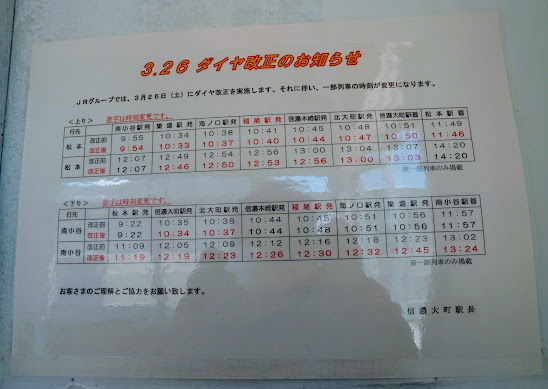 3.26 ダイヤ改正のお知らせ
JRグループでは、3月26日（土）にダイヤ改正を実施します。それに伴い、一部列車の時刻が変更になります。
<上り> 赤字は時刻変更です。
行先 南小谷駅発 簗場駅発 海ノ口駅発 稲尾駅発 信濃木崎駅発 北大町駅発 信濃大町駅発 松本駅着
松本 改正前 9:55 10:34 10:38 10:41 10:45 10:48 10:51 11:49
改正後 9:54 10:33 10:37 10:40 10:44 10:47 10:50 11:46
松本 改正前 12:07 12:49 12:54 12:56 13:00 13:04 13:07 14:20
改正後 12:07 12:46 12:50 12:53 12:56 13:00 13:03 14:20
※一部列車のみ掲載
<下り> 赤字は時刻変更です。
行先 松本駅発 信濃大町駅発 北大町駅発 信濃木崎駅発 稲尾駅発 海ノ口駅発 簗場駅発 南小谷駅着
南小谷 改正前 9:22 10:35 10:38 10:44 10:48 10:51 10:56 11:57
改正後 9:22 10:34 10:37 10:44 10:48 10:51 10:56 11:57
南小谷 改正前 11:09 12:05 12:09 12:12 12:16 12:18 12:23 13:02
改正後 11:19 12:19 12:23 12:26 12:30 12:32 12:45 13:24
※一部列車のみ掲載
お客さまのご理解とご協力をお願い致します。
信濃大町駅長